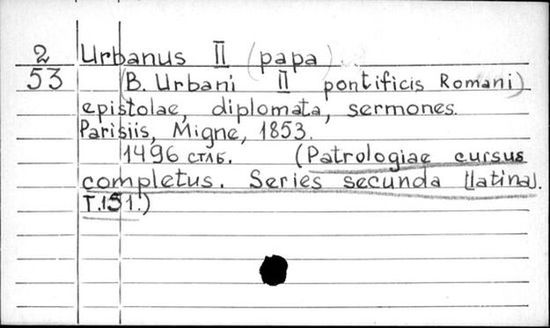 2 Urbanus II (papa)
53 (B. Urbani II pontificis Romani)
epistolae, diplomata, sermones.
Parisiis, Migne, 1853.
1496 стлб. (Patrologiae cursus
completus. Series secunda [latina].
T.151.)